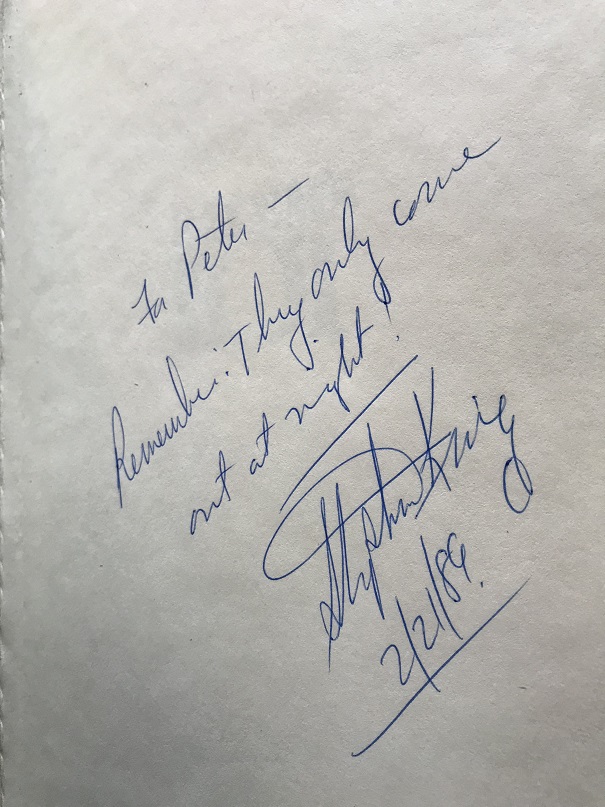 For Peter —
Remember: They only come
out at night!
Stephen King
2/21/89.